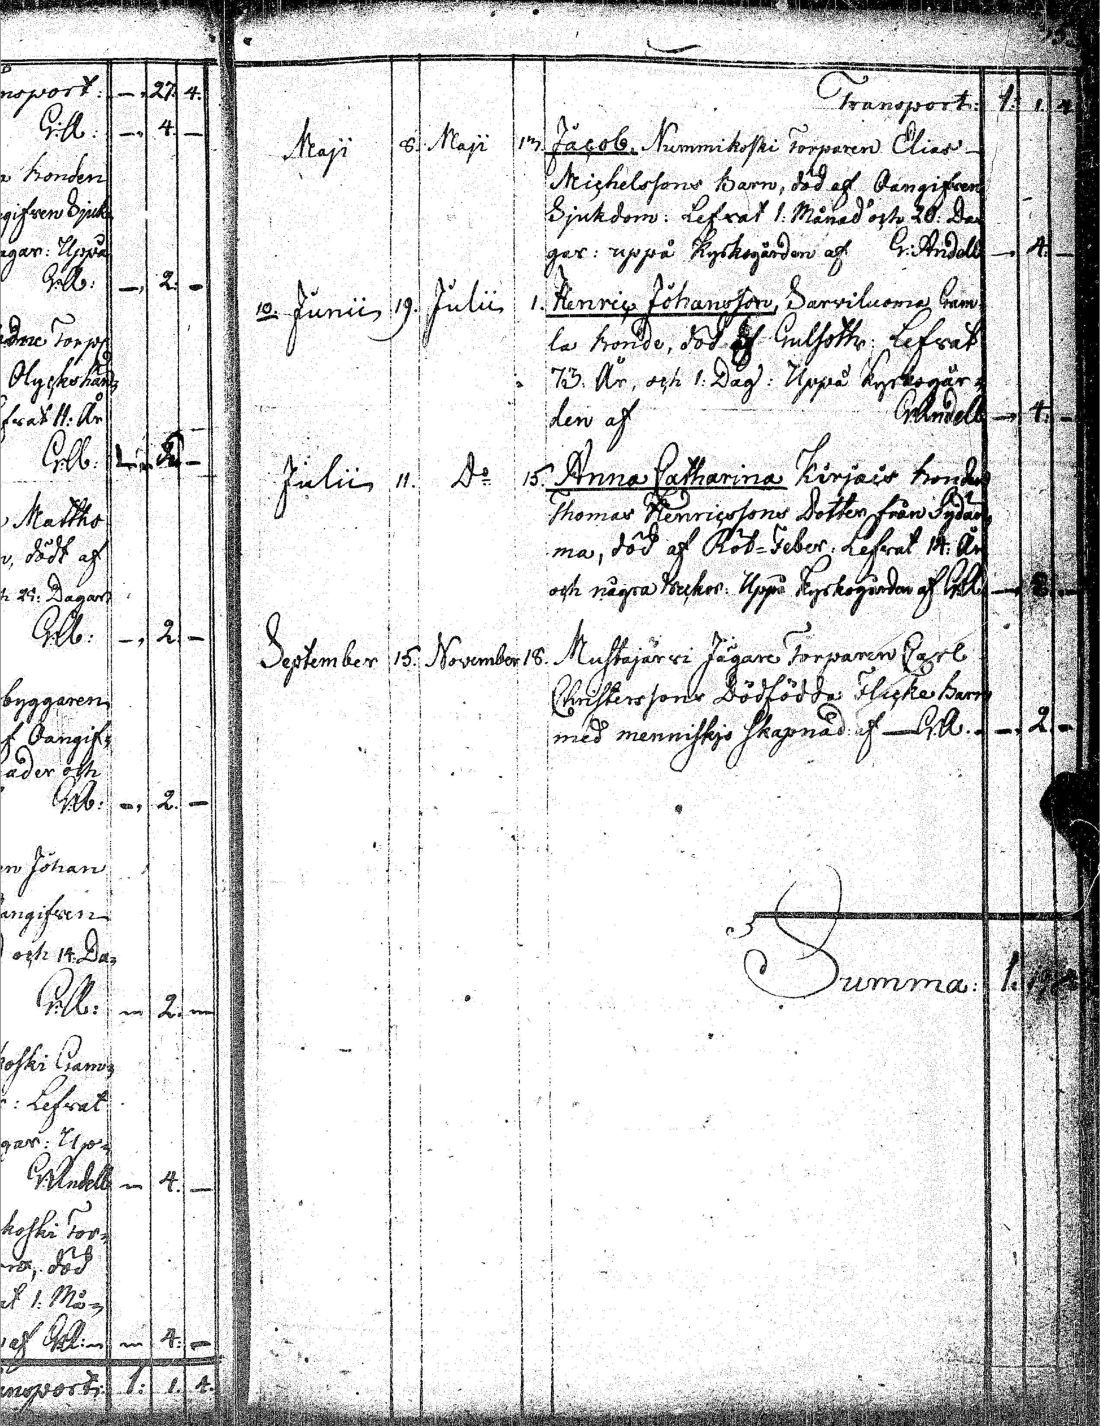 nsport: — 27. 4.
G:A: — 4. —
a bonden
gifven Sjuk
agar: Uppå
G:A: — 2. —
Torpp
Olyckshänd
frat 11: År
G:A:
Mattho
n, dödt af
h 24: Dagar
G:A: — 2. —
byggaren
f Oangif=
ader och
G:A: — 2. —
en Johan
angifven
och 14: Da=
G:A: — 2. —
koski Gam=
: Lefvat
gar: Up=
G:Andell — 4. —
koski Tor=
död
at 1: Må=
af G:A: — 4. —
ansport: 1: 1. 4.
Transport: 1: 1. 4
Maji 8. Maji 13. Jacob, Nummikoski Torparen Elias
Michelssons barn, död af Oangifven
Sjukdom: Lefvat 1: Månad och 20: Da
gar: uppå Kyrkogården af G:Andell — 4. —
10. Junii 19. Julii 1. Henric Johansson, Sarviluoma Gam
la bonde, död af Gulsott: Lefvat
73: År, och 1: Dag: Uppå Kyrkogår=
den af G:Andell — 4. —
Julii 11. Do 15. Anna Catharina Kirjais bonden
Thomas Henricssons Dotter från Sydän
ma, död af Röt=Feber: Lefvat 14: År
och några veckor: Uppå Kyrkogården af G:A.
September 15. November 18. Mustajärvi Jägare Torparen Carl
Christerssons Dödfödda Flicke barn
med menniskjo skapnad af — G:A. — 2. —
Summa: 1.